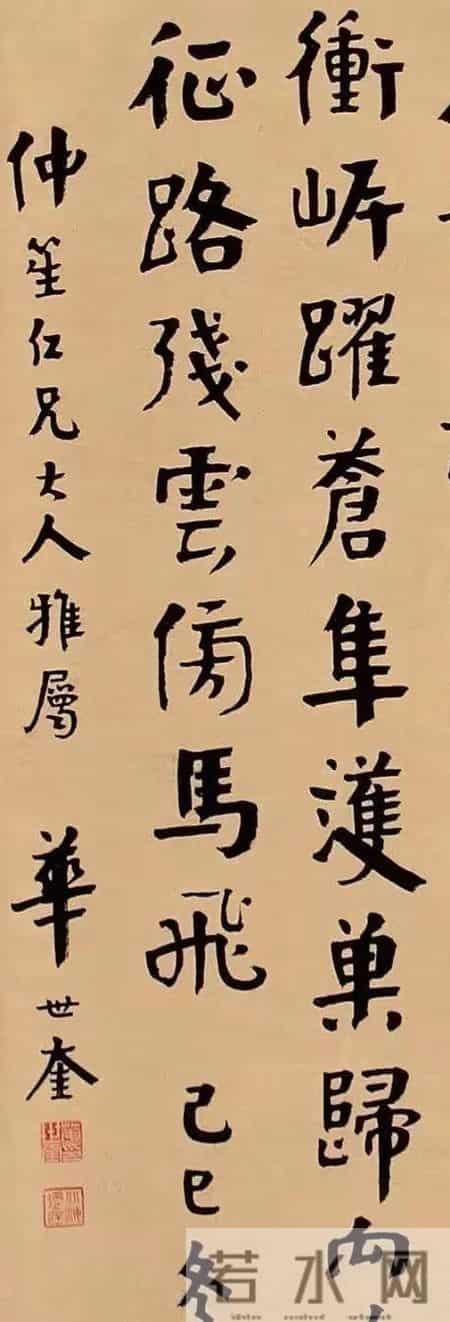 衝岸躍蒼隼護巢歸向
征路殘雲傍馬飛 己巳冬
仲笙仁兄大人雅屬 華世奎
若水网